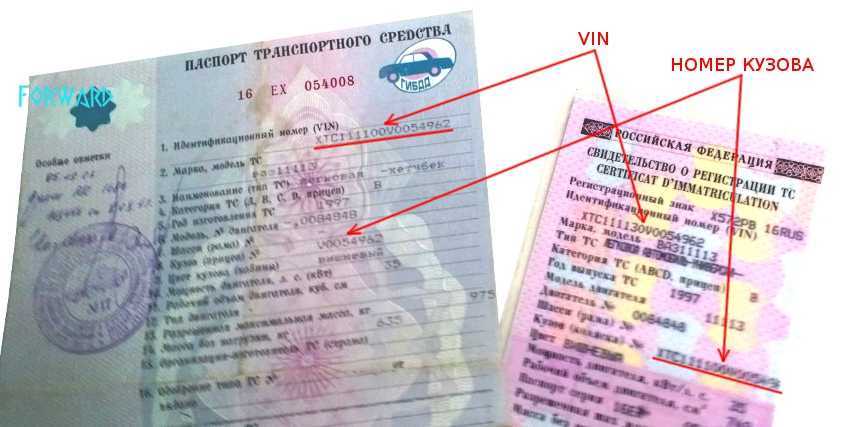 VIN
НОМЕР КУЗОВА
FORWARD
ПАСПОРТ ТРАНСПОРТНОГО СРЕДСТВА
16 ЕХ 054008
ГИБДД
Особые отметки
1. Идентификационный номер (VIN)
XTC111100V0054962
2. Марка, модель ТС
ВАЗ11113
3. Наименование (тип ТС) легковая -хетчбек
4. Категория ТС (А, В, С, D, прицеп) В
5. Год изготовления ТС 1997
6. Модель, № двигателя ,0084848
7. Шасси (рама) №
8. Кузов (прицеп) № V0054962
9. Цвет кузова (кабины) вишневый
10. Мощность двигателя, л. с. (кВт) 35
11. Рабочий объем двигателя, куб. см
12. Тип двигателя 975
13. Разрешенная максимальная масса, кг
14. Масса без нагрузки, кг 635
15. Организация-изготовитель ТС (страна)
16. Одобрение типа ТС № от
РОССИЙСКАЯ ФЕДЕРАЦИЯ
СВИДЕТЕЛЬСТВО О РЕГИСТРАЦИИ ТС
CERTIFICAT D'IMMATRICULATION
Регистрационный знак Х572РВ 16RUS
Идентификационный номер (VIN)
XTC111130V0054962
Марка, модель ВАЗ11113
Тип ТС
Категория ТС (ABCD, прицеп) В
Год выпуска ТС 1997
Модель двигателя 11113
Двигатель № 0084848
Шасси (рама) №
Кузов (коляска) №
Цвет ВИШНЕВЫЙ
Мощность двигателя, кВт/л. с. 35
Рабочий объем двигателя, см³
Паспорт серия
Разрешенная max
Масса без